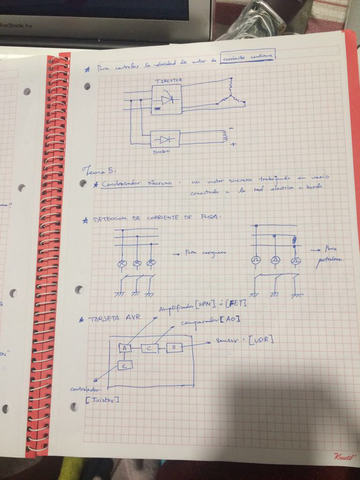 MacBook Pro
* Para controlar la velocidad de motor de corriente continua
TIRISTOR
DIODO
-
+
Tema 5:
* Condensador síncrono: un motor síncrono trabajando en vacío
conectado a la red eléctrica a bordo
* DETECCION DE CORRIENTE DE FUGA:
→ Para
→ Para
* TARJETA AVR
Amplificador [NPN] ó [FET]
comparador [AO]
sensor - [LDR]
A
C
S
C
controlador
[Tiristor]